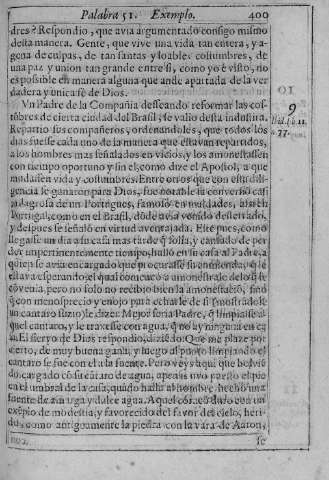 Palabra 51. Exemplo. 400
dres? Respondio, que avia argumentado consigo mismo
desta manera. Gente, que vive una vida tan entera, y a-
gena de culpas, de tan santas y loables costumbres, de
una paz y union tan grande entre si, como yo è visto, no
es possible en manera alguna que ande apartada de la ver
dadera y unica fè de Dios.
Un Padre de la Compañia desseando reformar las cos-
tũbres de cierta ciudad del Brasil, se valio desta industria.
Repartio sus compañeros, ordenandoles, que todos los
dias fuesse cada uno de la manera que estavan repartidos,
a los hombres mas señalados en vicios, y los amonestassen
con tiempo oportuno y sin el, como dize el Apostol, a que
mudassen vida y costumbres. Entre otros que con esta di-
ligencia se ganaron para Dios, fue notable la conversiõ casi
milagrosa de un Portugues, famoso en maldades, assi en
Portugal, como en el Brasil, dõde avia venido desterrado,
y despues se señalò en virtud aventajada. Este pues, como
llegasse un dia a su casa mas tarde q̃ solia, y cansado de per
der impertinentemente tiempo, hallò en su casa al Padre, a
quien se avia encargado que procurasse su enmienda, q̃ le
estava esperando el qual començò a amonestarle de lo q̃ le
cõvenia, pero no solo no recibio bien la amonestaciõ, sino
q̃ con menosprecio y enojo para echarle de si (mostrãdole
un cantaro suzio) le dize: Mejor seria Padre, q̃ limpiasse a-
quel cantaro, y le traxesse con agua, q̃ no la y ninguna en ca
sa. El siervo de Dios respondio, diziẽdo: Que me plaze por
cierto, de muy buena gana, y luego al punto limpiando el
cantaro se fue con el a la fuente. Pero veys aqui que bolviẽ
do cargado cõ su cãtaro de agua, apenas uvo puesto el pie
en el umbral de la casa, quãdo halla al hombre hecho una
fuente de amarga y dulce agua. Aquel coraçõ duro con un
exẽplo de modestia, y favorecido del favor del cielo, heri-
do, como antiguamente la piedra con la vara de Aaron,
se
9
77.